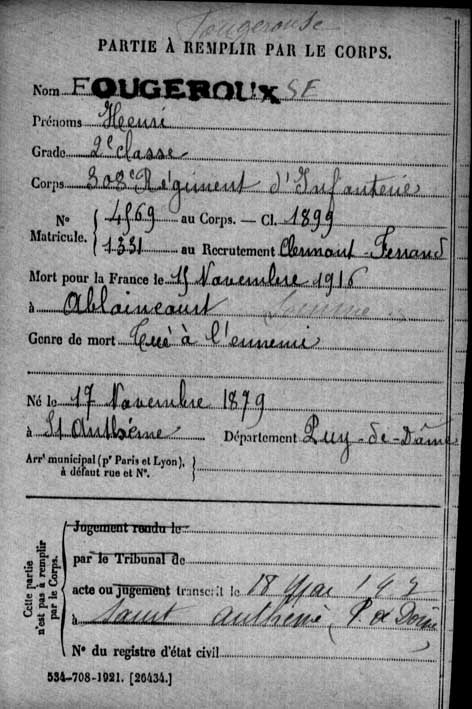 Fougerouse
PARTIE À REMPLIR PAR LE CORPS.
Nom FOUGEROUX SE
Prénoms Henri
Grade 2e classe
Corps 308e Régiment d'Infanterie
N° Matricule. { 4569 au Corps. — Cl. 1899
1331 au Recrutement Clermont-Ferrand
Mort pour la France le 15 Novembre 1916
à Ablaincourt Somme
Genre de mort Tué à l'ennemi
Né le 17 Novembre 1879
à St Anthème Département Puy-de-Dôme
Arrt municipal (pr Paris et Lyon), à défaut rue et N°. }
Cette partie n'est pas à remplir par le Corps.
Jugement rendu le
par le Tribunal de
acte ou jugement transcrit le 18 Mai
à Saint Anthème (P. de Dôme)
N° du registre d'état civil
534-708-1921. [26434.]